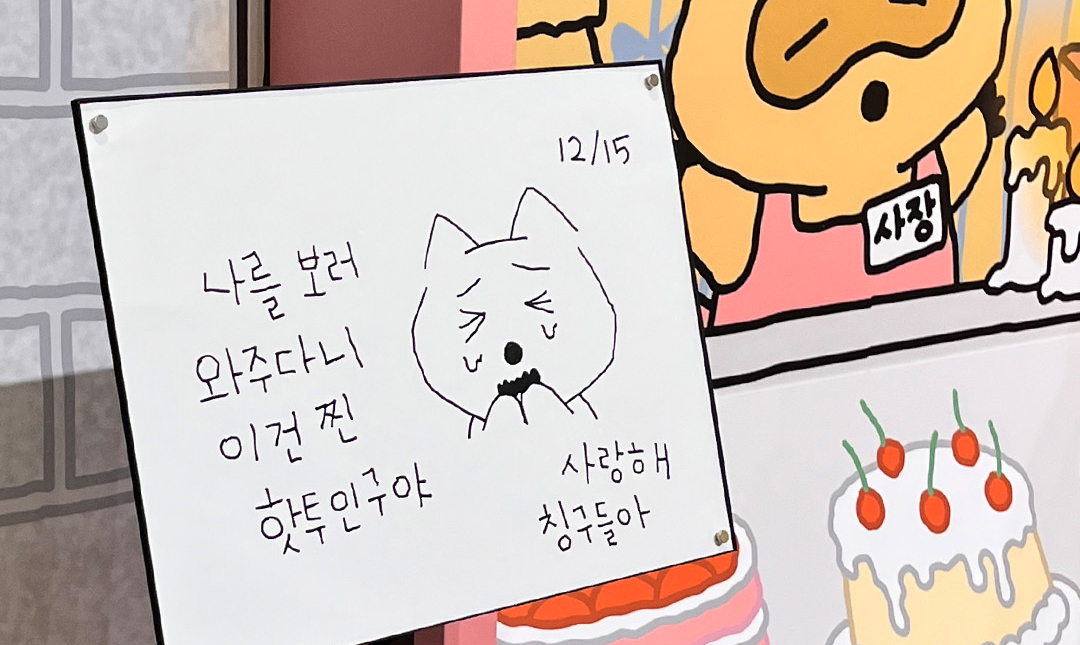 12/15
나를 보러
와주다니
이건 찐
핫투인구야
사랑해
칭구들아
사장